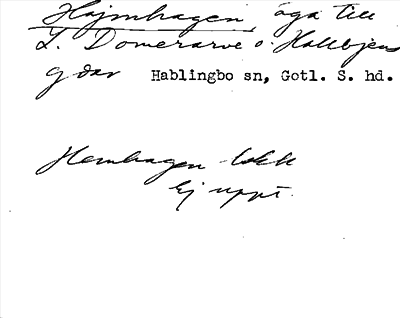 Hajmhagen, äga till
L. Domerarve o. Hallbjens
gdar Hablingbo sn, Gotl. S. hd.
Hemhagen
Ej uppt.